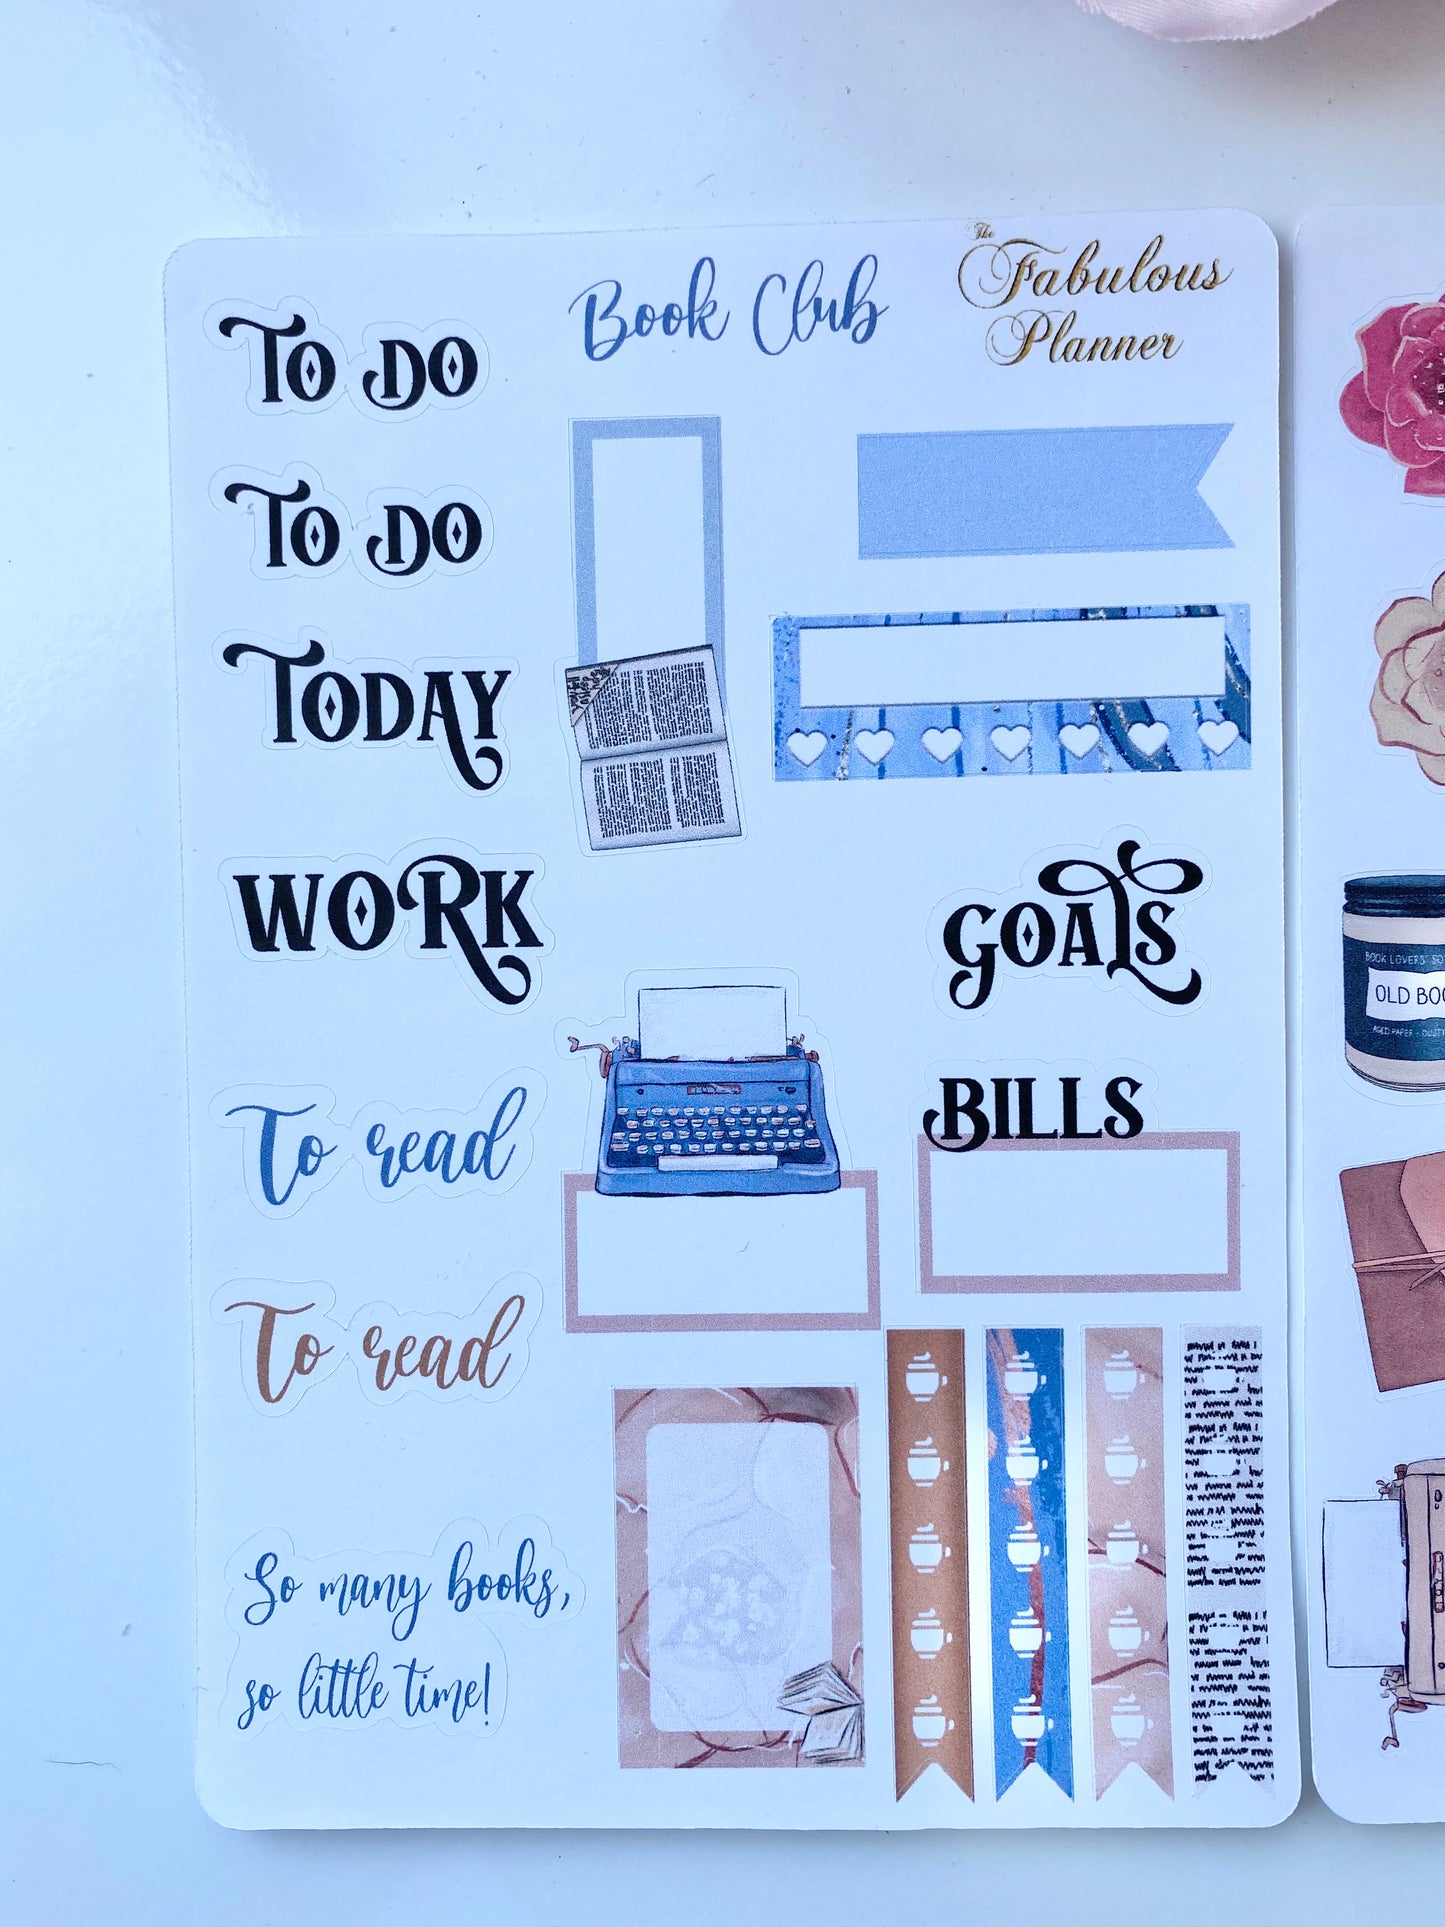 Book Club
The
Fabulous
Planner
To do
To do
Today
Work
To read
To read
So many books,
so little time!
Goals
Bills
BOOK LOVERS'
OLD
AGED PAPER -